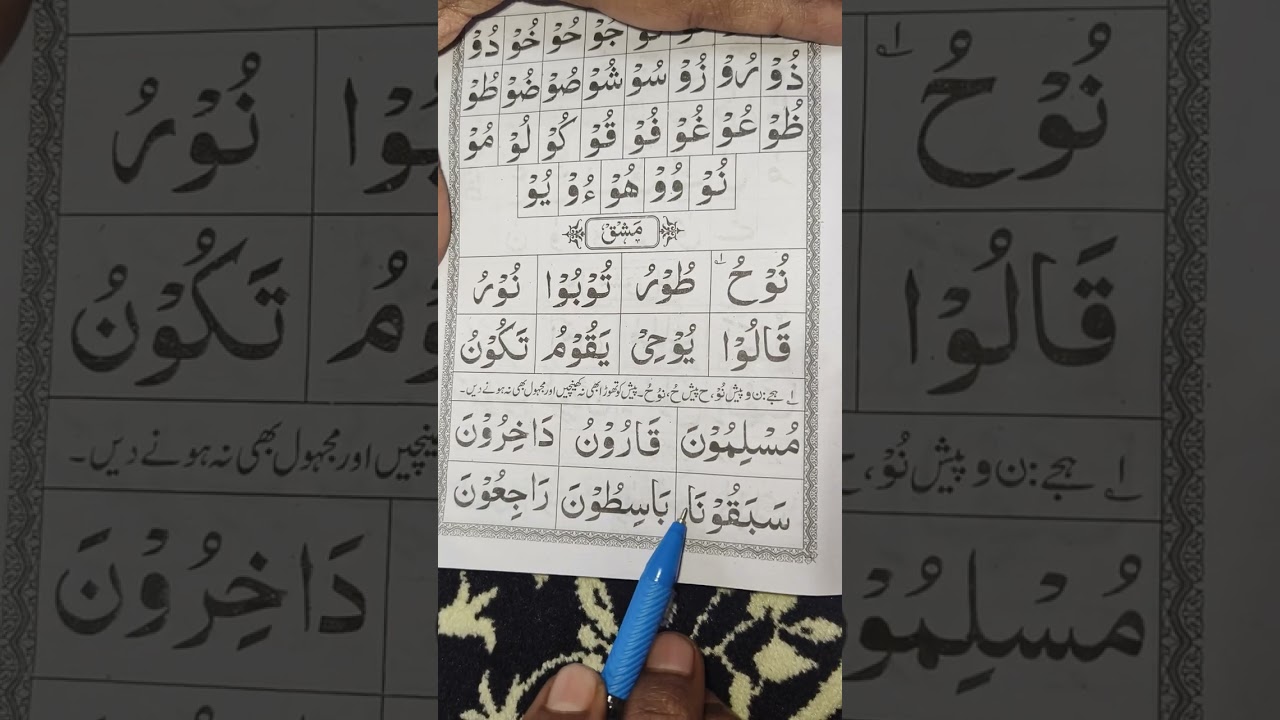 جَوْ حُوْ خُوْ دُوْ
ذُوْ رُوْ زُوْ سُوْ شُوْ صُوْ ضُوْ طُوْ
ظُوْ عُوْ غُوْ فُوْ قُوْ كُوْ لُوْ مُوْ
نُوْ وُوْ هُوْ ءُوْ يُوْ
مَشْق
نُوْحُ طُوْرُ تُوْبُوْا نُوْرُ
قَالُوْا يُوْحِيْ يَقُوْمُ تَكُوْنُ
۱ ہجے: ن و پیش نُوْ، ح پیش حُ، نُوْحُ۔ پیش کو تھوڑا بھی نہ کھینچیں اور مجہول بھی نہ ہونے دیں۔
مُسْلِمُوْنَ قَارُوْنُ دَاخِرُوْنَ
سَبَقُوْنَا بَاسِطُوْنَ رَاجِعُوْنَ